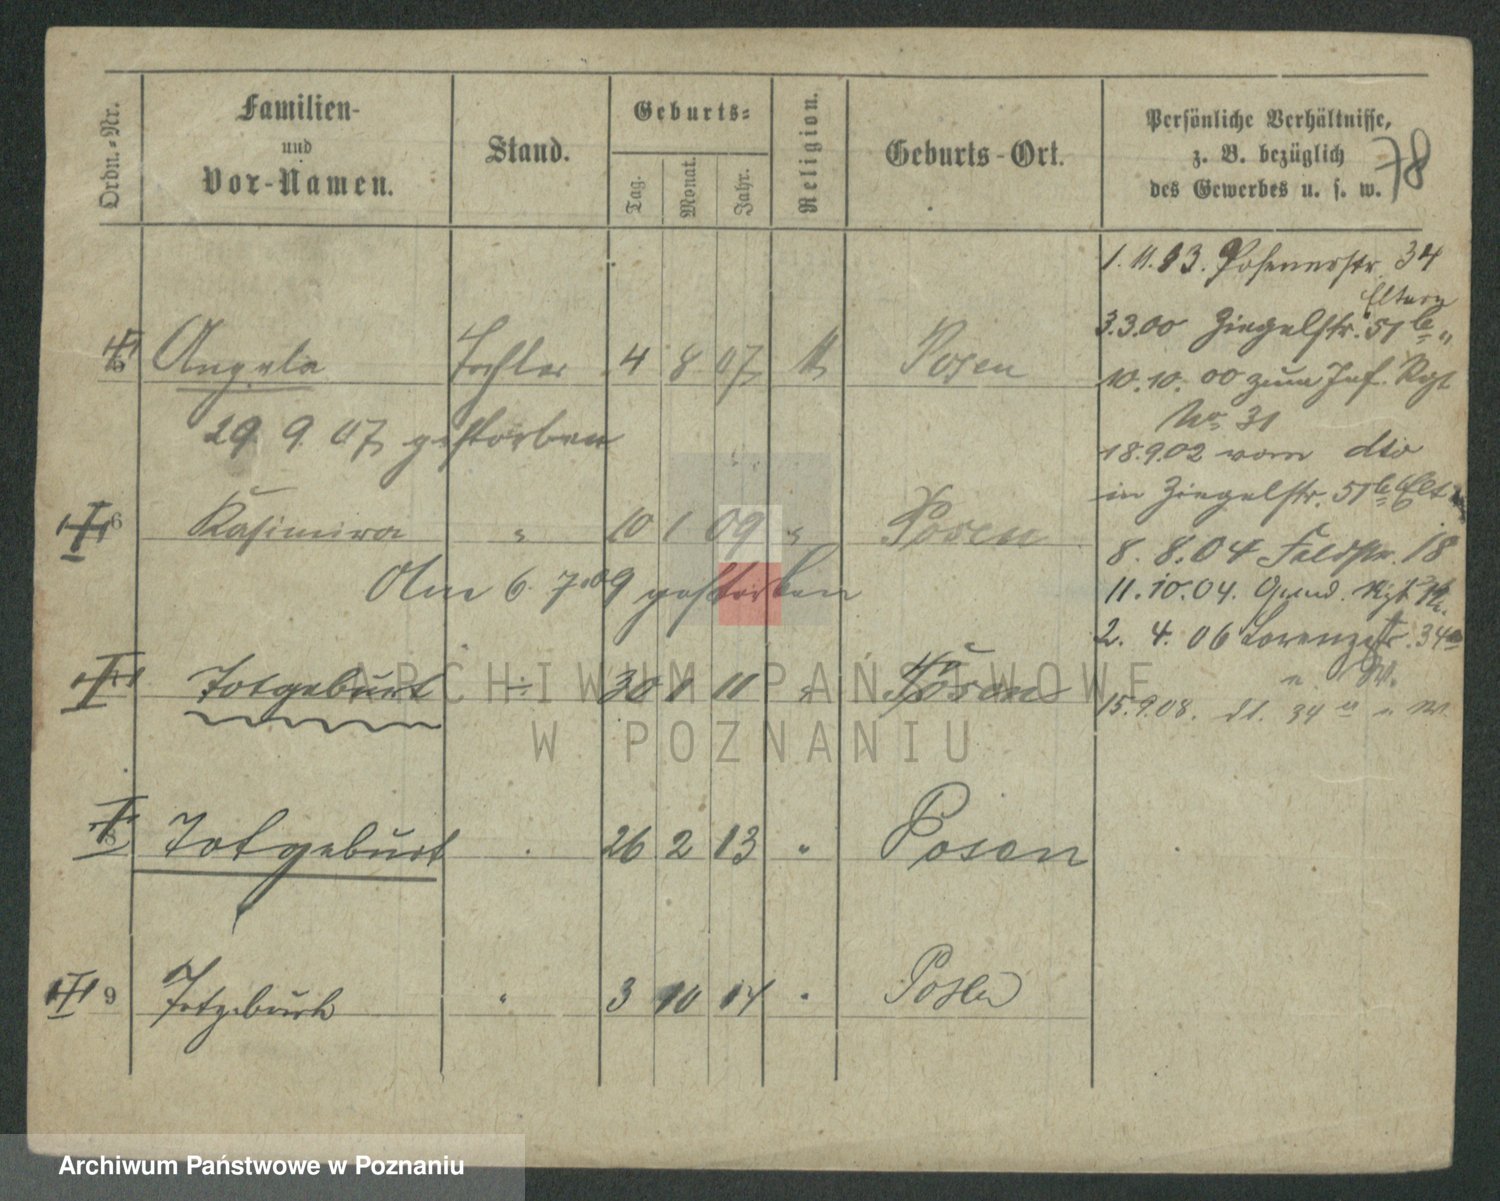 Ordn.-Nr.
Familien-
und
Vor-Namen.
Stand.
Geburts-
Tag.
Monat.
Jahr.
Religion.
Geburts-Ort.
Persönliche Verhältnisse,
z. B. bezüglich
des Gewerbes u. s. w.
78
1. 11. 93. Posenerstr. 34
Eltern
3.3.00 Ziegelstr. 51b
10.10.00 zum Inf. Rgt
No 31
18.9.02 vom dto
in Ziegelstr. 51b Elt
8. 8. 04 Feldstr. 18
11.10.04.
2. 4. 06 Lorenzstr. 34
15.9.08. 34
Angela Tochter 4 8 07 Posen
29. 9. 07 gestorben
6 Kasimira " 10 1 09 " Posen
Am 6. 7. 09 gestorben
Totgeburt 30 1 11 " Posen
8 Totgeburt 26 2 13 " Posen
9 Totgeburt " 3 10 14 " Posen
ARCHIWUM PAŃSTWOWE
W POZNANIU
Archiwum Państwowe w Poznaniu